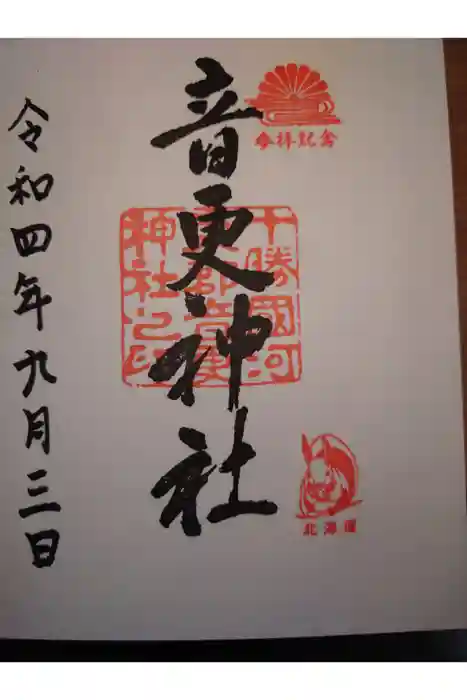 参拝記念
音更神社
十勝國河
東郡音更
神社之印
北海道
令和四年九月三日